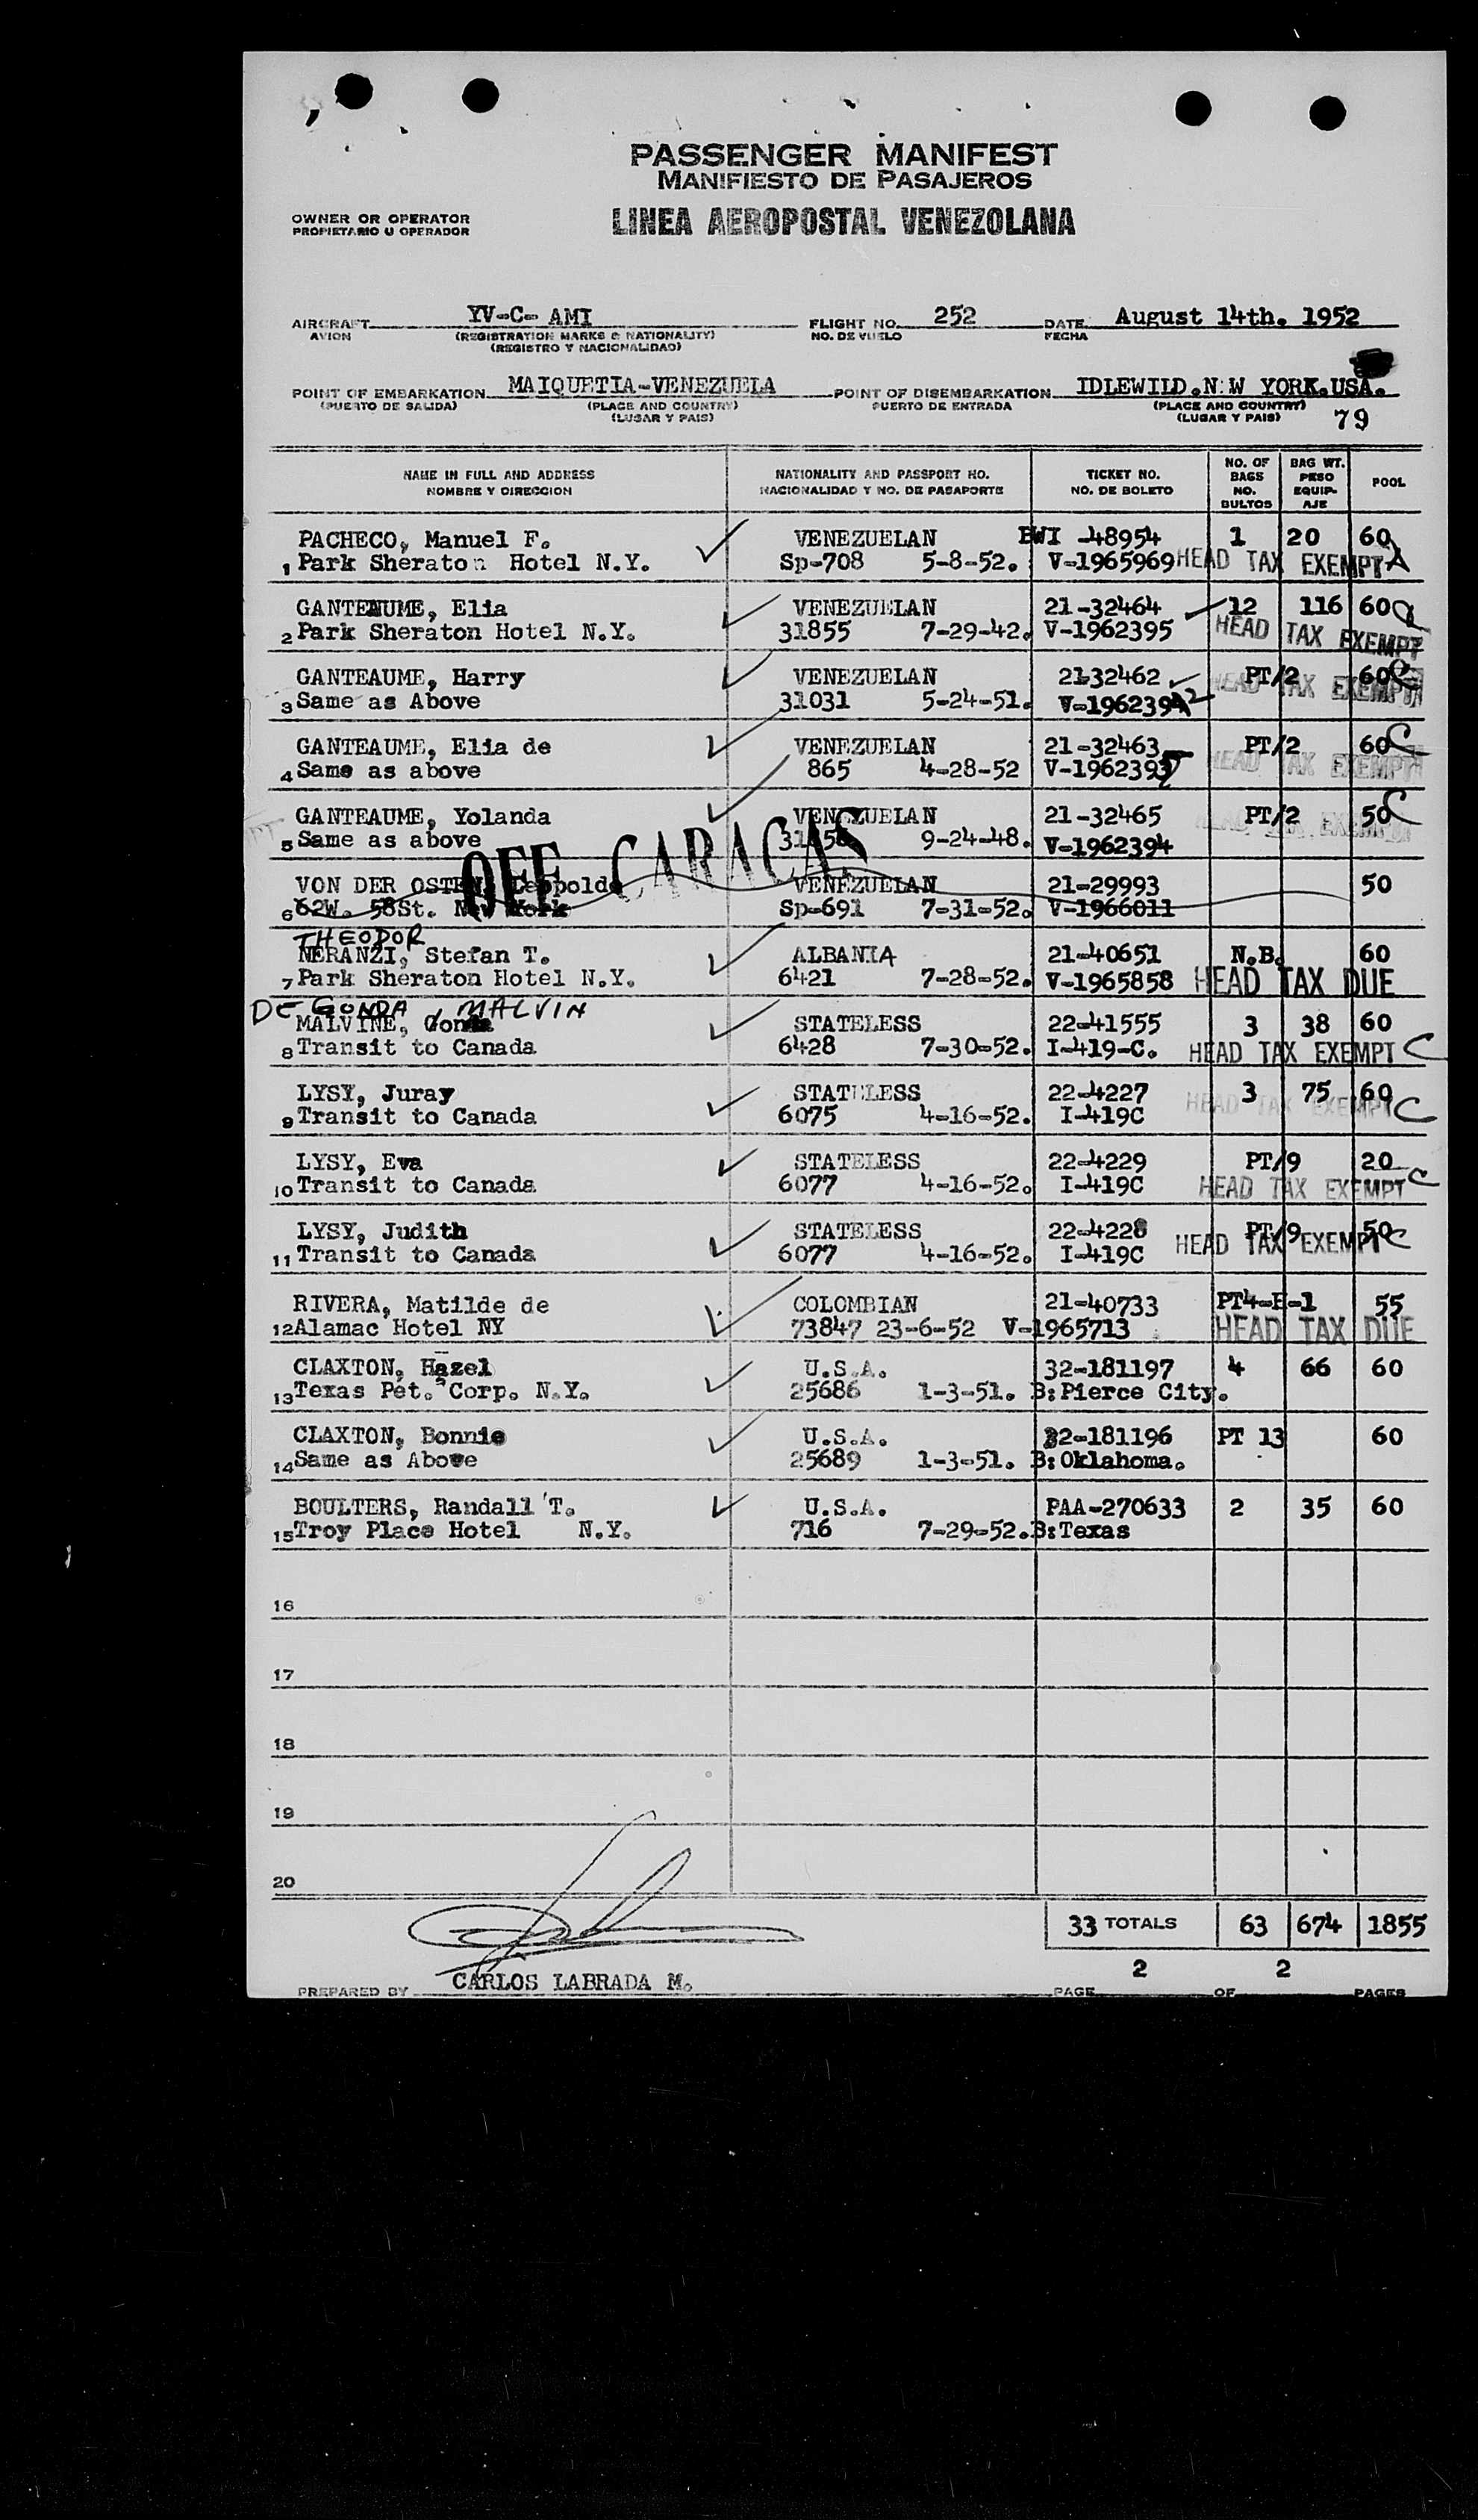 PASSENGER MANIFEST
MANIFIESTO DE PASAJEROS
OWNER OR OPERATOR
PROPIETARIO U OPERADOR
LINEA AEROPOSTAL VENEZOLANA
AIRCRAFT YV-C- AMI FLIGHT NO. 252 DATE August 14th. 1952
AVION (REGISTRATION MARKS & NATIONALITY) NO. DE VUELO FECHA
(REGISTRO Y NACIONALIDAD)
POINT OF EMBARKATION MAIQUETIA-VENEZUELA POINT OF DISEMBARKATION IDLEWILD.N W YORK.USA.
(PUERTO DE SALIDA) (PLACE AND COUNTRY) PUERTO DE ENTRADA (PLACE AND COUNTRY)
(LUGAR Y PAIS) (LUGAR Y PAIS) 79
NAME IN FULL AND ADDRESS NATIONALITY AND PASSPORT NO. TICKET NO. NO. OF BAGS BAG WT. POOL
NOMBRE Y DIRECCION NACIONALIDAD Y NO. DE PASAPORTE NO. DE BOLETO NO. BULTOS PESO EQUIP-AJE
PACHECO, Manuel F. VENEZUELAN BWI -48954 1 20 60
1 Park Sheraton Hotel N.Y. Sp-708 5-8-52. V-1965969 HEAD TAX EXEMPT A
GANTEAUME, Elia VENEZUELAN 21-32464 12 116 60
2 Park Sheraton Hotel N.Y. 31855 7-29-42. V-1962395 HEAD TAX EXEMPT
GANTEAUME, Harry VENEZUELAN 21-32462 PT/2 60 C
3 Same as Above 31031 5-24-51. V-1962392 HEAD TAX EXEMPT
GANTEAUME, Elia de VENEZUELAN 21-32463 PT/2 60 C
4 Same as above 865 4-28-52 V-1962395 HEAD TAX EXEMPT
GANTEAUME, Yolanda VENEZUELAN 21-32465 PT/2 50 C
5 Same as above 9-24-48. V-1962394 HEAD TAX EXEMPT
OFF CARACAS
VON DER OSTEN, Leopoldo VENEZUELAN 21-29993 50
6 62W. 58St. New York Sp-691 7-31-52. V-1966011
THEODOR
NERANZI, Stefan T. ALBANIA 21-40651 N.B. 60
7 Park Sheraton Hotel N.Y. 6421 7-28-52. V-1965858 HEAD TAX DUE
DE GONDA, MALVIN
MALVINE, Gonda STATELESS 22-41555 3 38 60
8 Transit to Canada 6428 7-30-52. I-419-C. HEAD TAX EXEMPT C
LYSY, Juray STATELESS 22-4227 3 75 60
9 Transit to Canada 6075 4-16-52. I-419C HEAD TAX EXEMPT C
LYSY, Eva STATELESS 22-4229 PT/9 20
10 Transit to Canada 6077 4-16-52. I-419C HEAD TAX EXEMPT C
LYSY, Judith STATELESS 22-4228 PT/9 50
11 Transit to Canada 6077 4-16-52. I-419C HEAD TAX EXEMPT C
RIVERA, Matilde de COLOMBIAN 21-40733 PT4-E-1 55
12 Alamac Hotel NY 73847 23-6-52 V-1965713 HEAD TAX DUE
CLAXTON, Hazel U.S.A. 32-181197 4 66 60
13 Texas Pet. Corp. N.Y. 25686 1-3-51. B:Pierce City.
CLAXTON, Bonnie U.S.A. 32-181196 PT 13 60
14 Same as Above 25689 1-3-51. B:Oklahoma.
BOULTERS, Randall T. U.S.A. PAA-270633 2 35 60
15 Troy Place Hotel N.Y. 716 7-29-52. B:Texas
16
17
18
19
20
33 TOTALS 63 674 1855
PREPARED BY CARLOS LABRADA M. PAGE 2 OF 2 PAGES